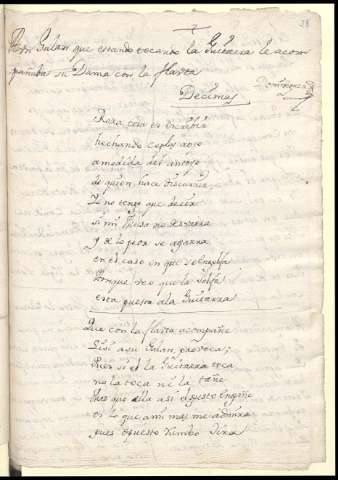 28
Galan que estando tocando la Guitarra le acom
pañaba su Dama con la flauta
Decimas
Rara cosa es
hechando coplas
a medida del antojo
de quien hace
Y no tengo que decir
si mi Musa no desbarra
Y de lo peor se agarra
en el caso en que se
Porque veo que la Solfa
esta puesta ala Guitarra
Que con la flauta acompañe
Lisi a su Galan, provoca;
Pues si el la Guitarra toca
no la toca ni la tañe
Pero que ella asi el gusto engañe
es lo que a mi mas me admira
pues opuesto rumbo tira